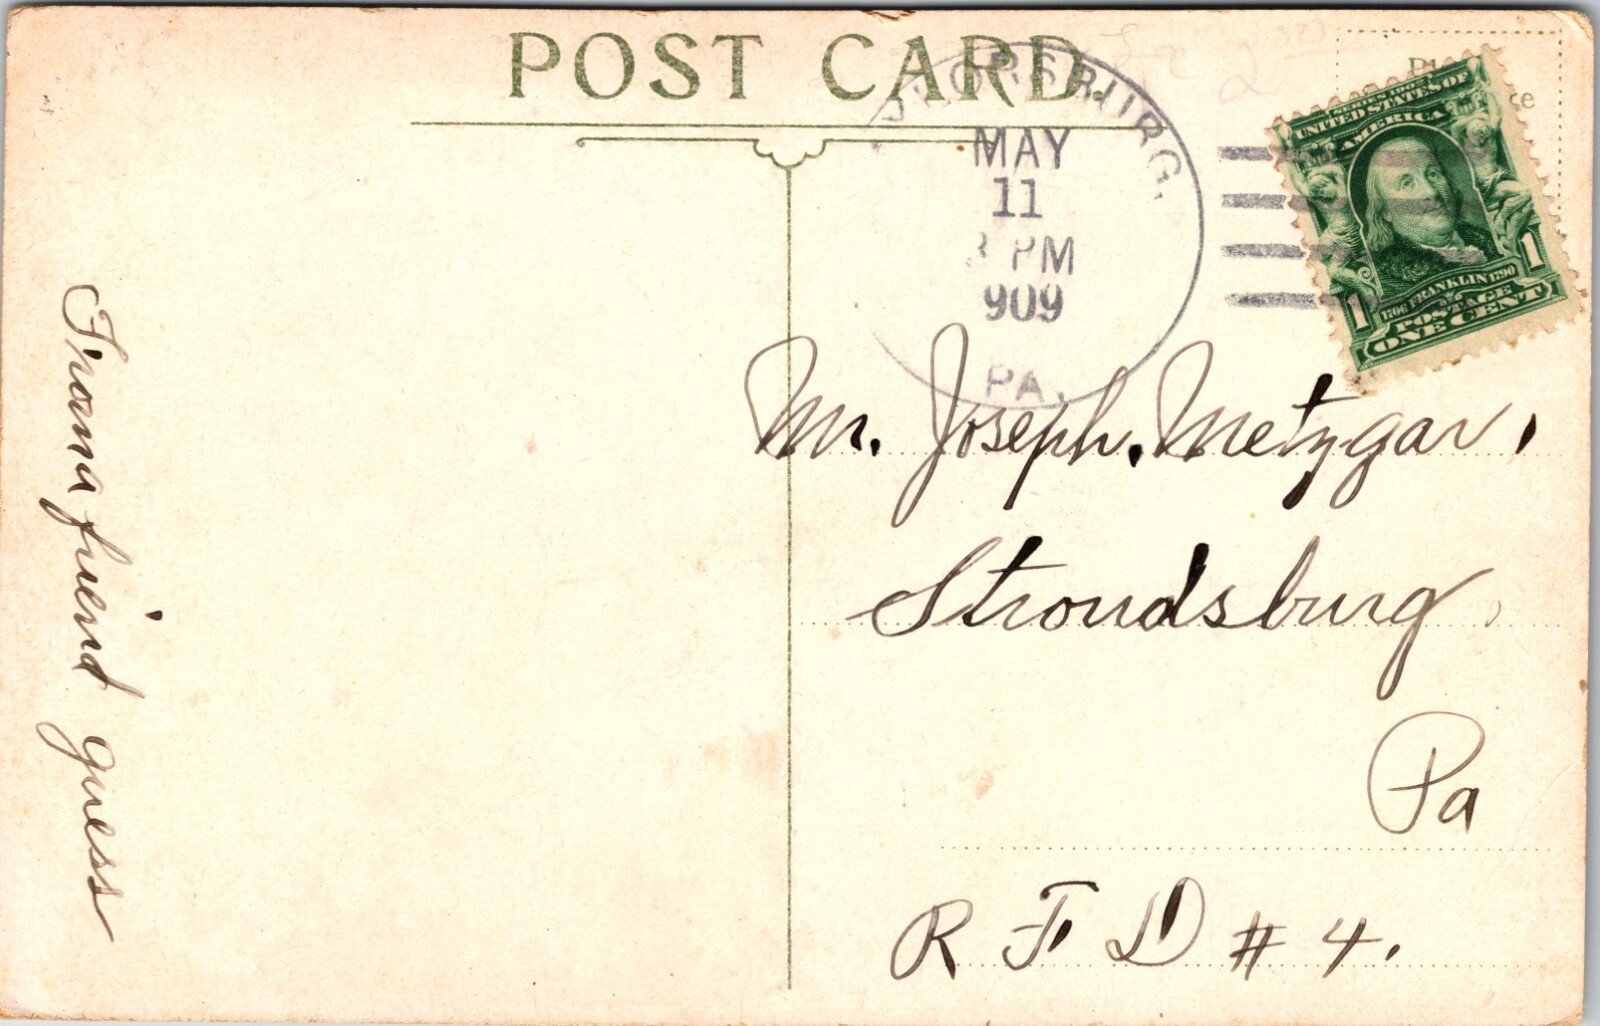 POST CARD.
MAY
11
PM
909
PA.
UNITED STATES OF
AMERICA
1706 FRANKLIN 1790
1 1
POSTAGE
ONE CENT
Mr. Joseph. Metzgar,
Stroudsburg
Pa
R F D # 4.
From a friend guess